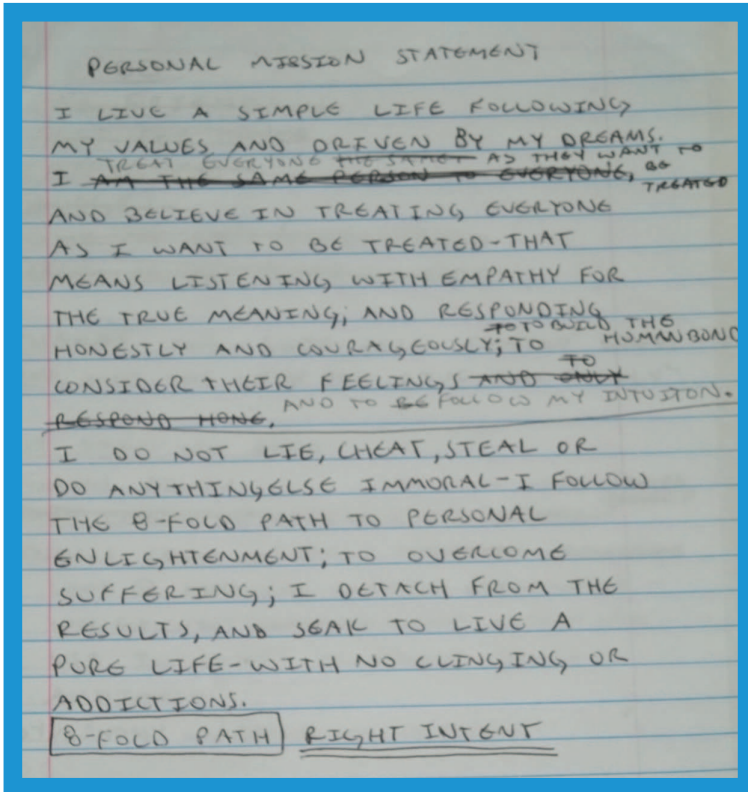 PERSONAL MISSION STATEMENT
I LIVE A SIMPLE LIFE FOLLOWING
MY VALUES AND DRIVEN BY MY DREAMS.
TREAT EVERYONE THE SAME AS THEY WANT TO
I AM THE SAME PERSON TO EVERYONE, BE
TREATED
AND BELIEVE IN TREATING EVERYONE
AS I WANT TO BE TREATED-THAT
MEANS LISTENING WITH EMPATHY FOR
THE TRUE MEANING; AND RESPONDING
TO TO BUILD THE
HONESTLY AND COURAGEOUSLY; TO HUMAN BOND
TO
CONSIDER THEIR FEELINGS AND ONLY
AND TO BE FOLLOW MY INTUITON.
RESPOND HONE,
I DO NOT LIE, CHEAT, STEAL OR
DO ANYTHING ELSE IMMORAL-I FOLLOW
THE 8-FOLD PATH TO PERSONAL
ENLIGHTENMENT; TO OVERCOME
SUFFERING; I DETACH FROM THE
RESULTS, AND SEAK TO LIVE A
PURE LIFE-WITH NO CLINGING OR
ADDICTIONS.
8-FOLD PATH RIGHT INTENT